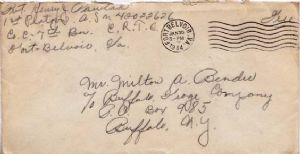 Pvt. Henry
1st Platoon A.S.N. 42022626
Co. C. 7th Bn. E.R.T.C.
Fort Belvoir, Va.
FORT BELVOIR, VA.
JAN
PM
Free
Mr. Milton A. Bender
c/o Buffalo Forge Company
P.O Box 985
Buffalo, N.Y.